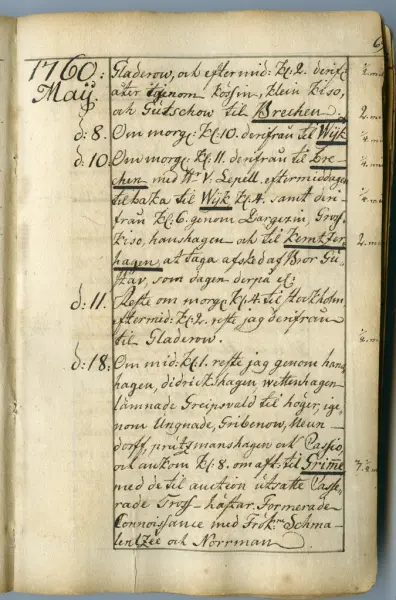 1760: Gladerow, och eftermid: Kl: 2. derifr
Maij. åter igenom Kössin, Klein Kiso,
och Gütschow til Brechen. 2. m
d: 8. Om morg: Kl: 10. derifrån til Wijk
d: 10. Om morg: Kl: 11. derifrån til Bre-
chen med Hr V. Lepell. eftermiddagen
tilbaka til Wijk Kl: 4. samt der-
ifrån Kl: 6. genom Dargezin, Gross
Kiso, hanshagen och til Kemtzer
hagen, at taga afsked af Bror Gu-
stav, som dagen derpå
d: 11. Reste om morg: Kl: 4. til Stockholm
eftermid: Kl: 2. reste jag derifrån
til Gladerow.
d: 18. Om mid: Kl: 1. reste jag genom hans
hagen, didrickshagen, wettenhagen
lämnade Greipsvald til höger, ige-
nom Ungnade, Gribenow, Neun
dorff, prützmanshagen och Passio,
och ankom Kl: 8. om aft: til Grime
med de til auction utsatte Casse-
rade Tross-hästar. Formerade
Connoissance med Frökne Schma-
lentzée och Norrman